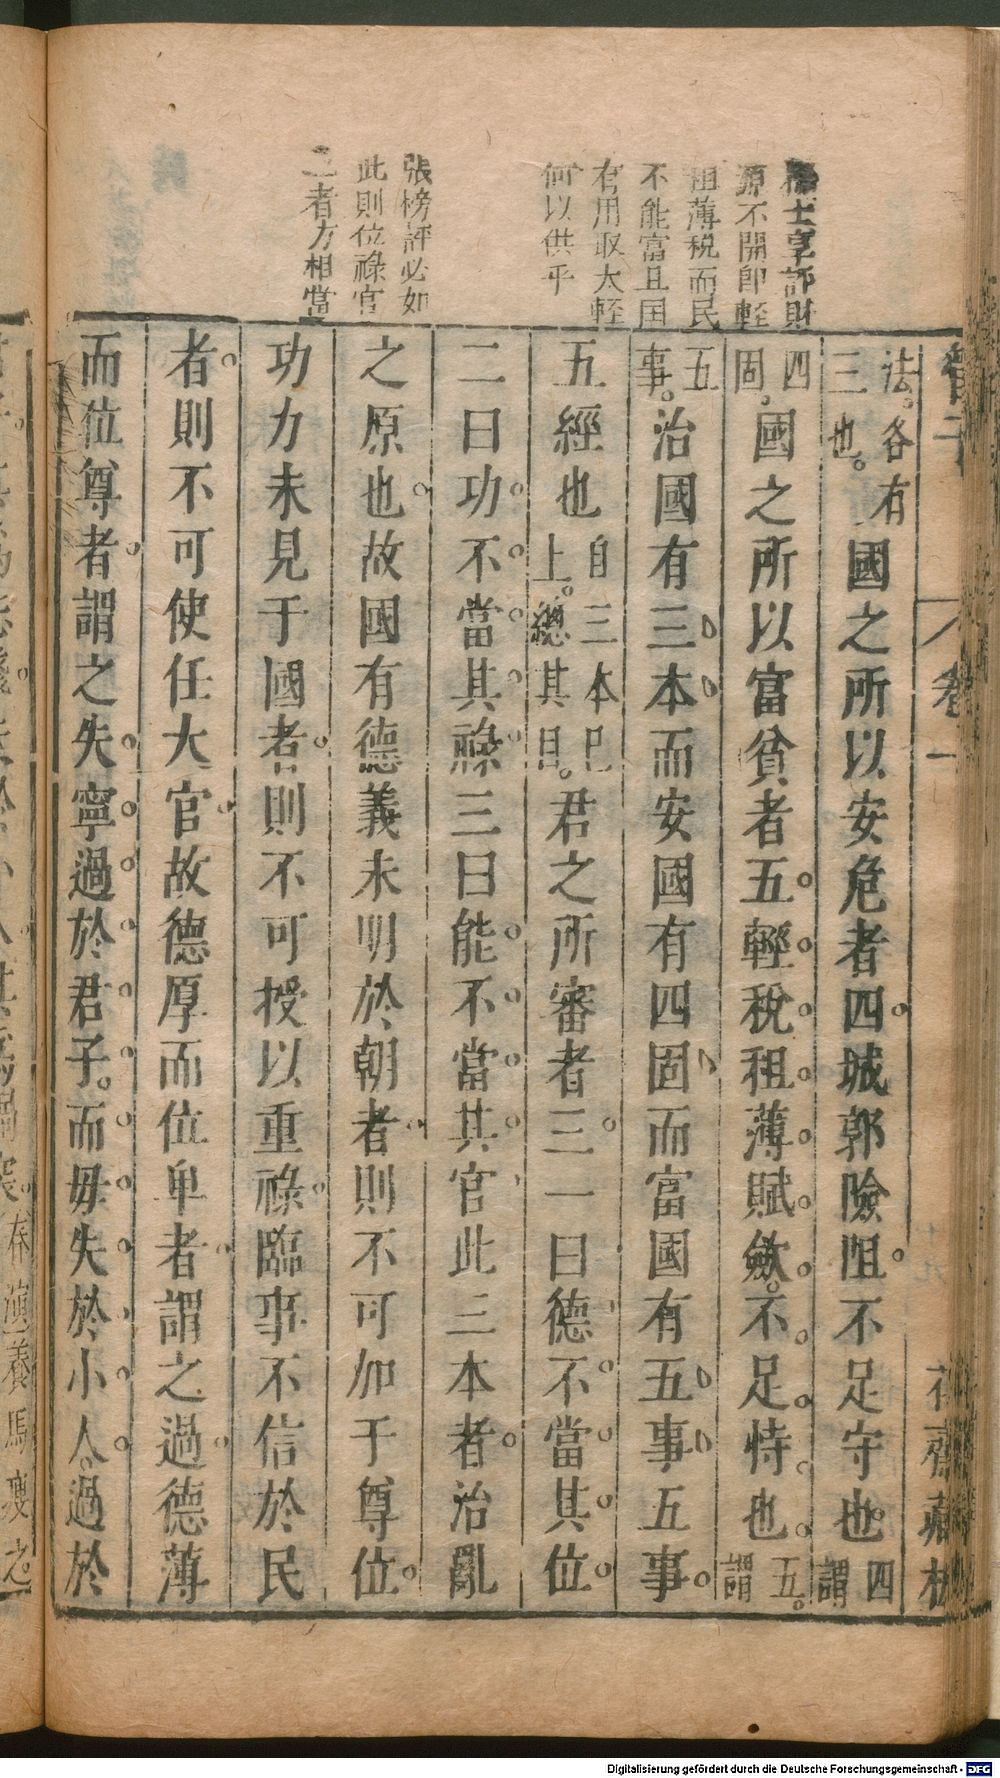 管子
卷一
法。各有
三也。
國之所以安危者四。城郭險阻。不足守也。四
謂
四
固。
國之所以富貧者五。輕稅租薄賦斂。不足恃也。五。
謂
五
事。
治國有三本。而安國有四固。而富國有五事。五事。
五經也
自三本已
上。總其目。
君之所審者三。一曰德不當其位。
二曰功不當其祿。三曰能不當其官。此三本者。治亂
之原也。故國有德義未明於朝者。則不可加于尊位。
功力未見于國者。則不可授以重祿。臨事不信於民
者。則不可使任大官。故德厚而位卑者。謂之過。德薄
而位尊者。謂之失。寧過於君子。而毋失於小人。過於
士享評財
源不開即輕
租薄稅而民
不能富且國
有用取太輕
何以供乎
張榜評必如
此則位祿官
三者方相當
春演
養馬
瘦之
Digitalisierung gefördert durch die Deutsche Forschungsgemeinschaft - DFG